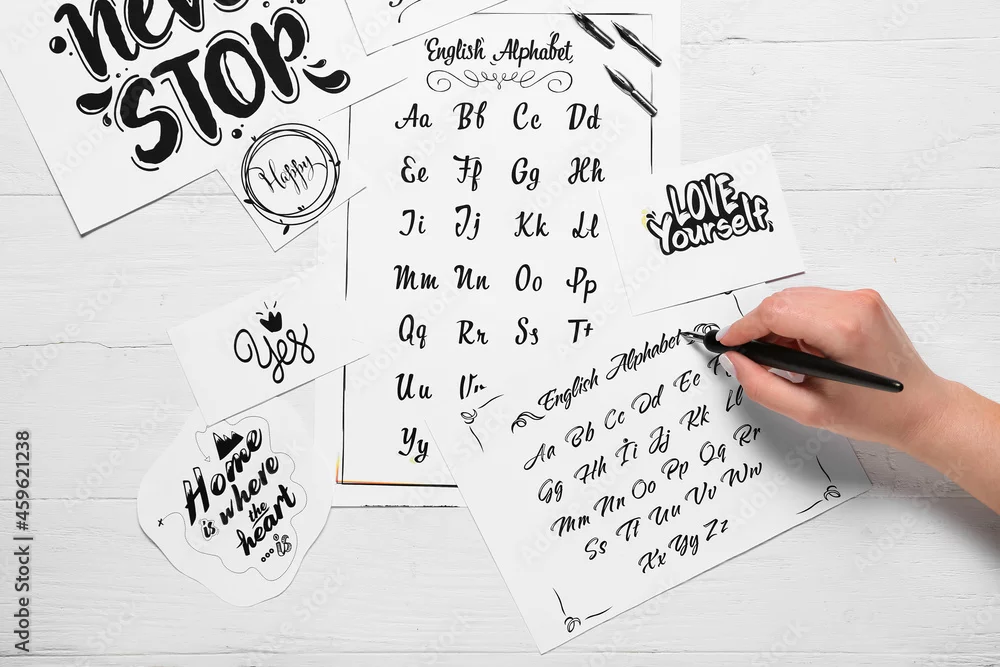 Never
STOP
Happy
English Alphabet
Aa Bb Cc Dd
Ee Ff Gg Hh
Ii Jj Kk Ll
Mm Nn Oo Pp
Qq Rr Ss Tt
Uu Vv
Yy
LOVE
Yourself
Yes
Home
is where
the
heart
...is
English Alphabet
Aa Bb Cc Dd Ee
Gg Hh Ii Jj Kk Ll
Mm Nn Oo Pp Qq Rr
Ss Tt Uu Vv Ww
Xx Yy Zz
Adobe Stock | #459621238